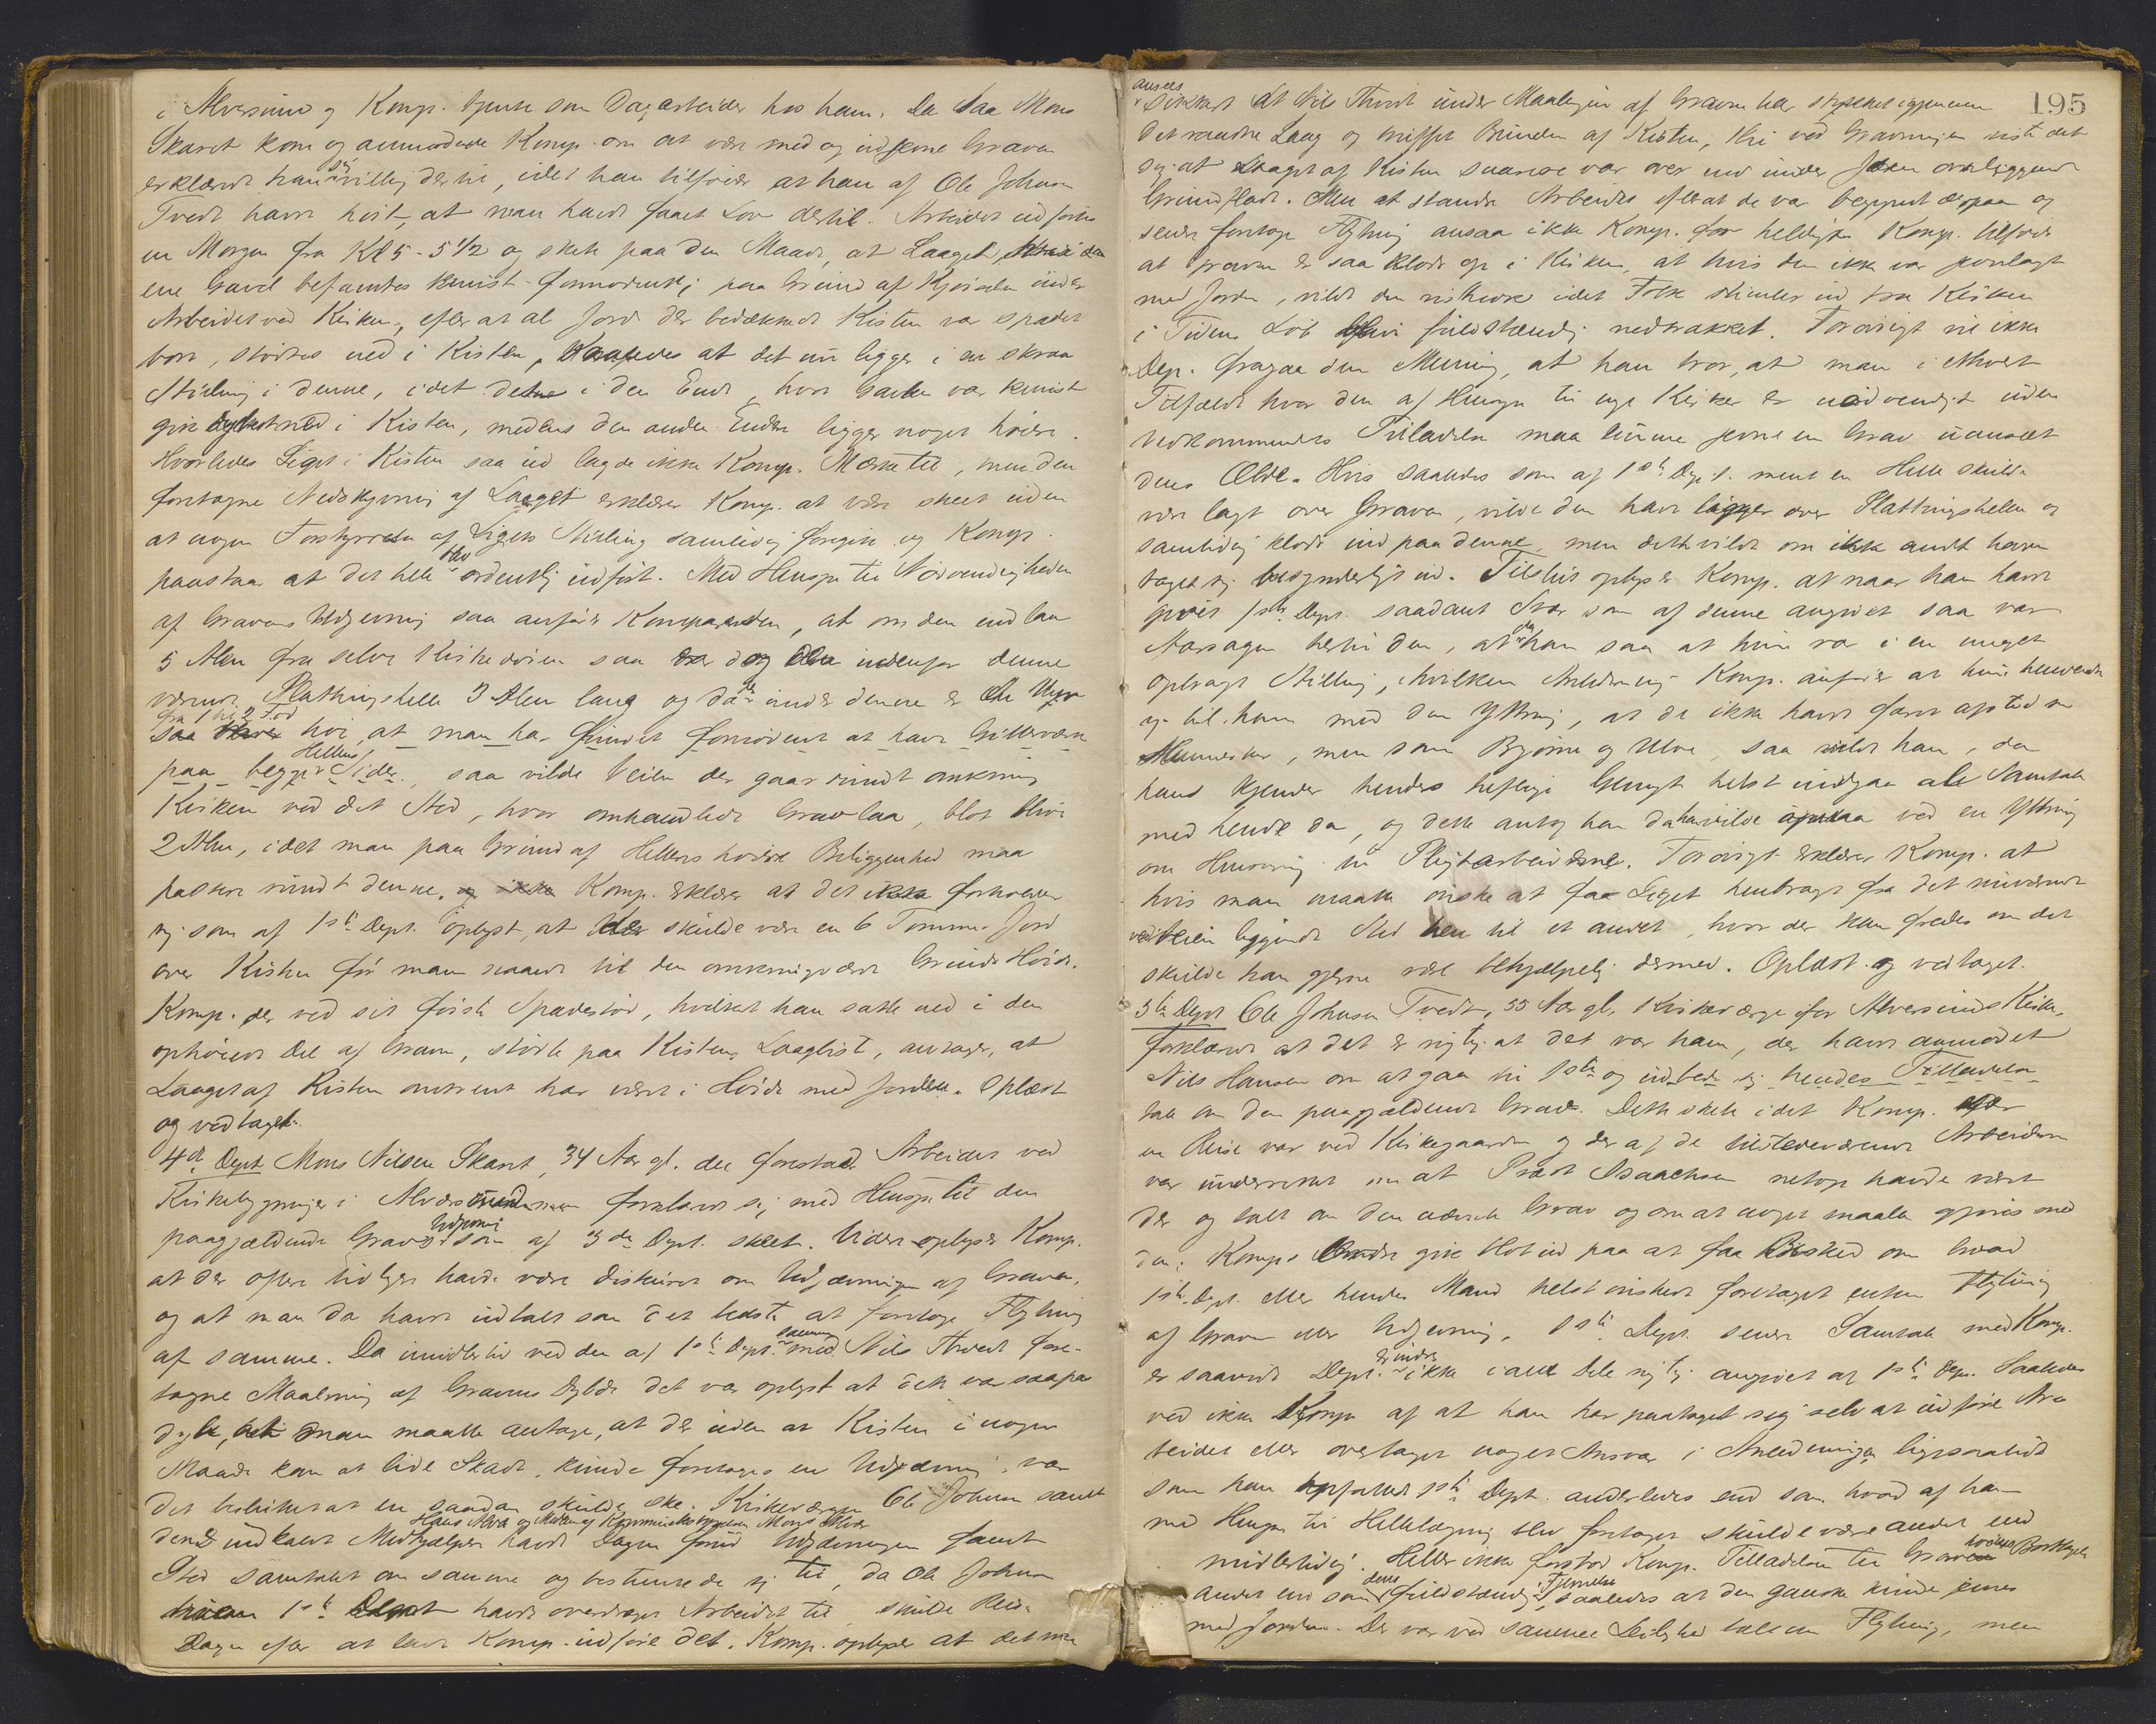 i Alversund og Komp. tjente som Dagarbeider hos ham. Da saa Mons
Skaret kom og anmodede Komp. om at være med og udjevne Graven
erklærede han sig villig dertil, idet han tilføier at han af Ole Johnsen
Tvedt havde hørt, at man havde faaet Lov dertil. Arbeidet udførtes
en Morgen fra Kl 5 - 5 1/2 og skete paa den Maade, at Laaget, den
ene Gavel befandtes knust formodentlig paa Grund af Kjørselen under
Arbeidet ved Kirken, efter at al Jord der bedækkede Kisten var spadet
bort, stødtes ned i Kisten, saaledes at det nu ligger i en skraa
Stilling i denne, idet dette i den Ende, hvor Gavlen var knust
gik dybest ned i Kisten, medens den anden Ende ligger noget høiere.
Hvorledes Liget i Kisten saa ud lagde ikke Komp. Mærke til, men den
foretagne Nedskyvning af Laaget erklærer Komp. at være skeet uden
at nogen Forstyrrelse af Ligets Stilling samtidig foregik og Komp.
paastaar at det hele blev ordentlig udført. Med Hensyn til Nødvendigheden
af Gravens Udjevning saa anfører Komparenten, at om den end laa
5 Alen fra selve Kirkedøren saa er dog den udenfor denne
værende Plattingshelle 3 Alen lang og da der under denne er en
fra 1 til 2 Fod
høi, at man har fundet fornødent at have Gitterværk
paa begge Hellens Sider, saa vilde Veien der gaar rundt omkring
Kirken ved det Sted, hvor omhandlede Grav laa, blot blive
2 Alen, idet man paa Grund af Hellens høiere Beliggenhed maa
passere rundt denne. Komp. erklærer at det ikke forholder
sig som af 1ste Dept. oplyst, at der skulde være en 6 Tommer Jord
over Kisten før man naaede til den omkringværende Grunds Høide.
Komp. der ved sit første Spadestød, hvilket han satte ned i den
ophøiede Del af Graven, stødte paa Kistens Laaglist, antager, at
Laaget af Kisten omtrent har været i Høide med Jorden. Oplæst
og vedtaget.
4de Dept Mons Nilsen Skaret, 34 Aar gl. der forestaar Arbeidet ved
Kirkebygningen i Alversund forklarede sig med Hensyn til den
paagjældende Gravs Udjevning som af 3die Dept. skeet. Videre oplyser Komp.
at der oftere tidligere havde være diskuteret om Udjævningen af Graven,
og at man da havde udtalt som det bedste at foretage Flytning
af samme. Da imidlertid ved den af 1ste Dept. sammen med Nils Thvedt fore-
tagne Maalning af Gravens Dybde det var oplyst at dette var saapas
dyb, at man maatte antage, at der uden at Kisten i nogen
Maade kom at lide Skade, kunde foretages en Udjævning, var
det besluttet at en saadan skulde ske. Kirkeværgen Ole Johnsen samt
Hans Alvær og Medlem af Kommunebestyrelsen Mons Alvær
dennes indkaldte Medhjælper havde Dagen forud Udjævningen fandt
Sted samtalet om samme og bestemte de sig til, da Ole Johnsen
1ste Dept havde overdraget Arbeidet til skulde Reise
Dagen efter at lade Komp. udføre det. Komp. oplyser at det maa
195
ansees
sikkert at Nils Thvedt under Maalingen af Graven har stukket igjennem
det raadne Laag og truffet Bunden af Kisten, thi ved Gravningen viste det
sig at Laaget af Kisten snarere var over end under den omliggende
Grundflade. Men at standse Arbeidet efterat de var begyndt derpaa og
senere foretage Flytning ansaa ikke Komp. for heldigt. Komp. tilføier
at Graven er saa klods op i Kirken, at hvis den ikke var jevnlagt
med Jorden, vilde den risikere idet Folk skimler ud fra Kirken
i Tidens Løb blive fuldstændig nedtrakket. Forøvrigt vil ikke
Dep. fragaa den Mening, at han tror, at man i ethvert
Tilfælde hvor den af Hensyn til nye Kirker er nødvendigt uden
Vedkommendes Tilladelse maa kunne jevne en Grav uanseet
dens Ælde. Hvis saaledes som af 1ste Dept. ment en Helle skulde
være lagt over Graven, vilde den have ligget over Plattingshellen og
samtidig klods ind paa denne, men dette vilde om ikke andet have
taget sig besynderligt ud. Tilsidst oplyser Komp. at naar han havde
givet 1ste Dept. saadant Svar som af denne angivet saa var
Aarsagen hertil den, at da han saa at hun var i en meget
oprægt Stilling, i hvilken Anledning Komp. anfører at hun henvendte
sig til ham med den Yttring, at de ikke havde faret afsted som
Mennesker, men som Bjørne og Ulve, saa vilde han, da
hand kjender hendes heftige Gemyt helst undgaa al Samtale
med hende da, og dette antog han da han vilde opnaa ved en Yttring
om Henvisning til Pligtarbeiderne. Forøvrigt erklærer Komp. at
hvis man maatte ønske at faa Liget henbragt fra det nuværende
ved Veien liggende Sted hen til et andet, hvor der kan fredes om det
skulde han gjerne være behjælpelig dermed. Oplæst og vedtaget.
5te Dept Ole Johnsen Tvedt, 55 Aar gl. Kirkeværge for Alversunds Kirke,
forklarede at det er rigtig at det var ham, der havde anmodet
Nils Hansen om at gaa til 1ste og udbede sig hendes Tilladelse
tale om den paagjældende Grav. Dette skete idet Komp. efter
en Reise var ved Kirkegaarden og der af de tilstedeværende Arbeidere
var underrettet om at Præst Isaachsen netop havde vært
der og talt om den nævnte Grav og om at noget maatte gjøres med
den. Komps Ærinde gik blot ud paa at faa Besked om hvad
1ste Dept. eller hendes Mand helst ønskede foretaget enten Flytning
af Graven eller Udjevning. 1ste Dept. senere Samtale med Komp.
er saavidt Dept. erindre ikke i alle Dele rigtig angivet af 1ste Dep. Saaledes
ved ikke Komp af at han har paataget sig selv at udføre Ar-
beidet eller overtaget noget Ansvar i Anledningen ligesaalidt
som han opfattede 1ste Dept. anderledes end som hvad af ham
med Hensyn til Hellelægning blev foretaget skulde være andet end
midlertidig. Heller ikke forstod Komp. Tilladelsen til Gravtuens Borttagelse
andet end som dens fuldstændig Fjernelse, saaledes at den ganske kunde jevnes
med Jorden. Der var ved samme Leilighed tale om Flytning, men